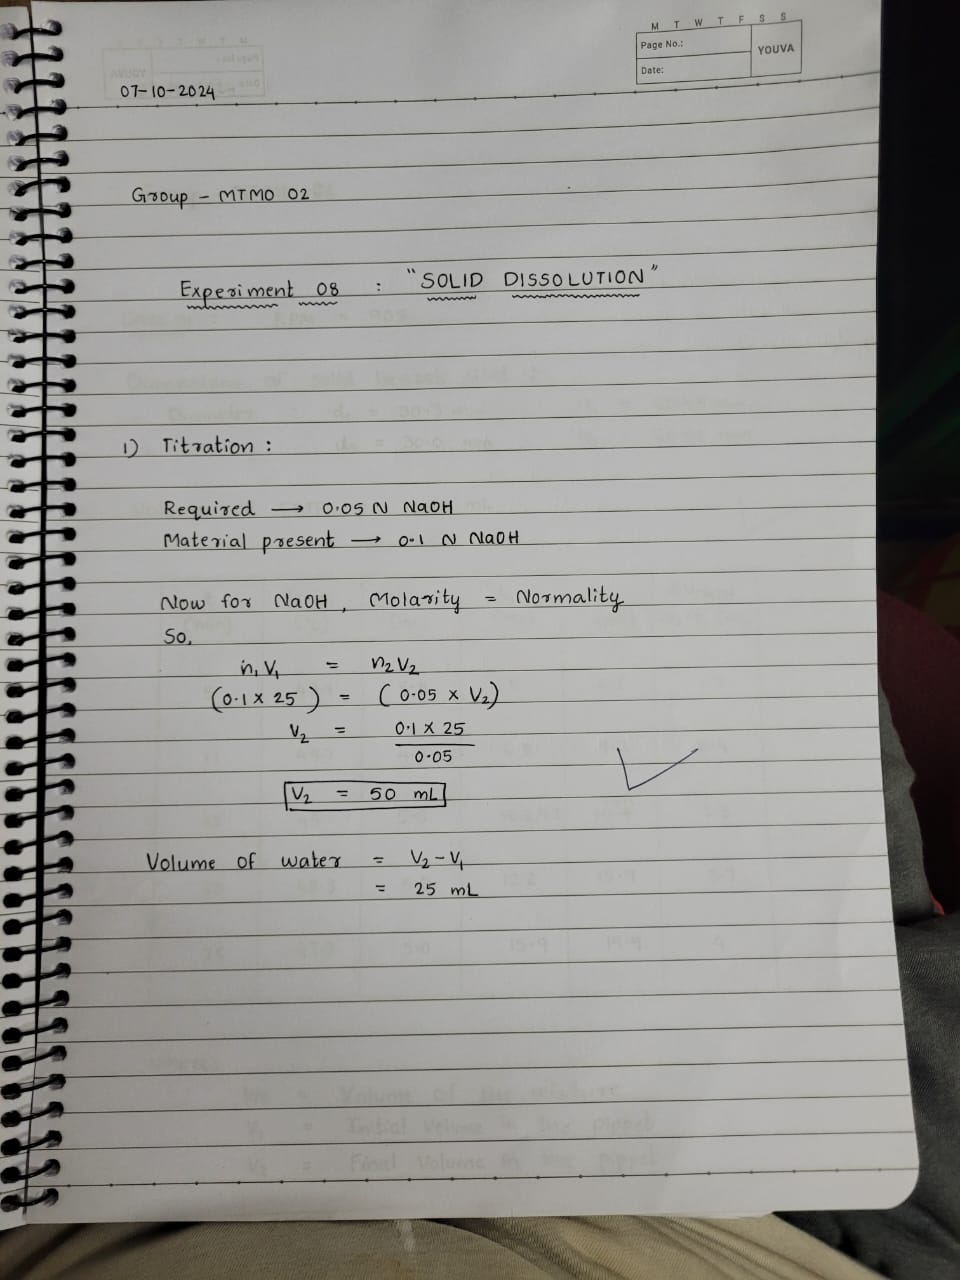 M T W T F S S
Page No.:
YOUVA
Date:
07-10-2024
Group - MTMO 02
Experiment 08 : "SOLID DISSOLUTION"
1) Titration :
Required → 0.05 N NaOH
Material present → 0.1 N NaOH
Now for NaOH, Molarity = Normality
So,
n₁V₁ = n₂V₂
(0.1 x 25) = (0.05 x V₂)
V₂ = 0.1 x 25
0.05
V₂ = 50 mL
Volume of water = V₂ - V₁
= 25 mL